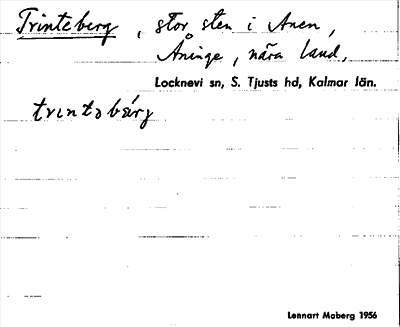 Trinteberg, stor sten i Anen,
Åninge, nära land.
Locknevi sn, S. Tjusts hd, Kalmar län.
trintəbærj
Lennart Moberg 1956